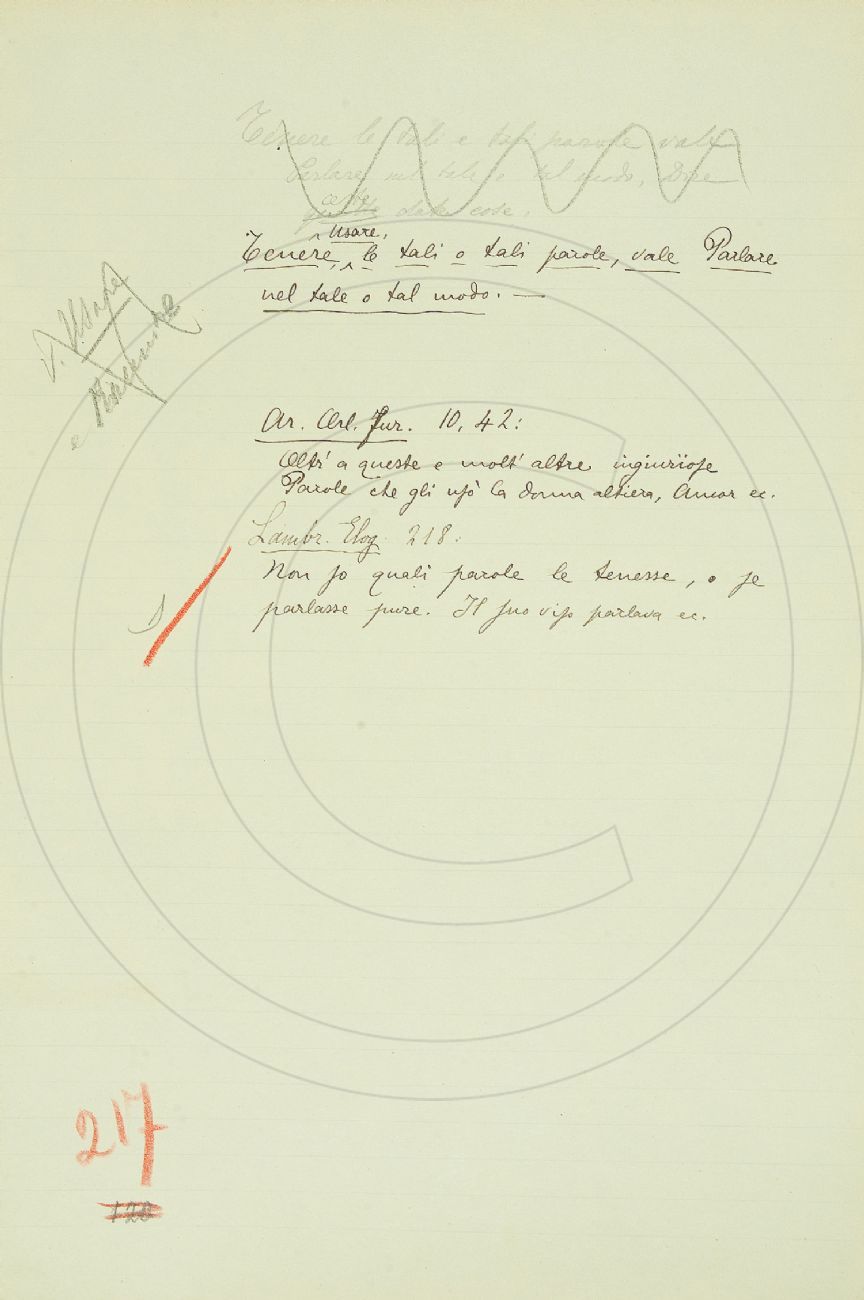 Tenere le tali e tali parole vale
Parlare nel tale o tal modo, Dire
certe
queste date cose.
Usare,
Tenere, le tali o tali parole, vale Parlare
nel tale o tal modo. —
V. Usare
e
Ar. Orl. Fur. 10, 42:
Oltr' a queste e molt' altre ingiuriose
Parole che gli usò la donna altiera, Ancor ec.
Lambr. Elog. 218:
Non so quali parole le tenesse, o se
parlasse pure. Il suo viso parlava ec.
217
128